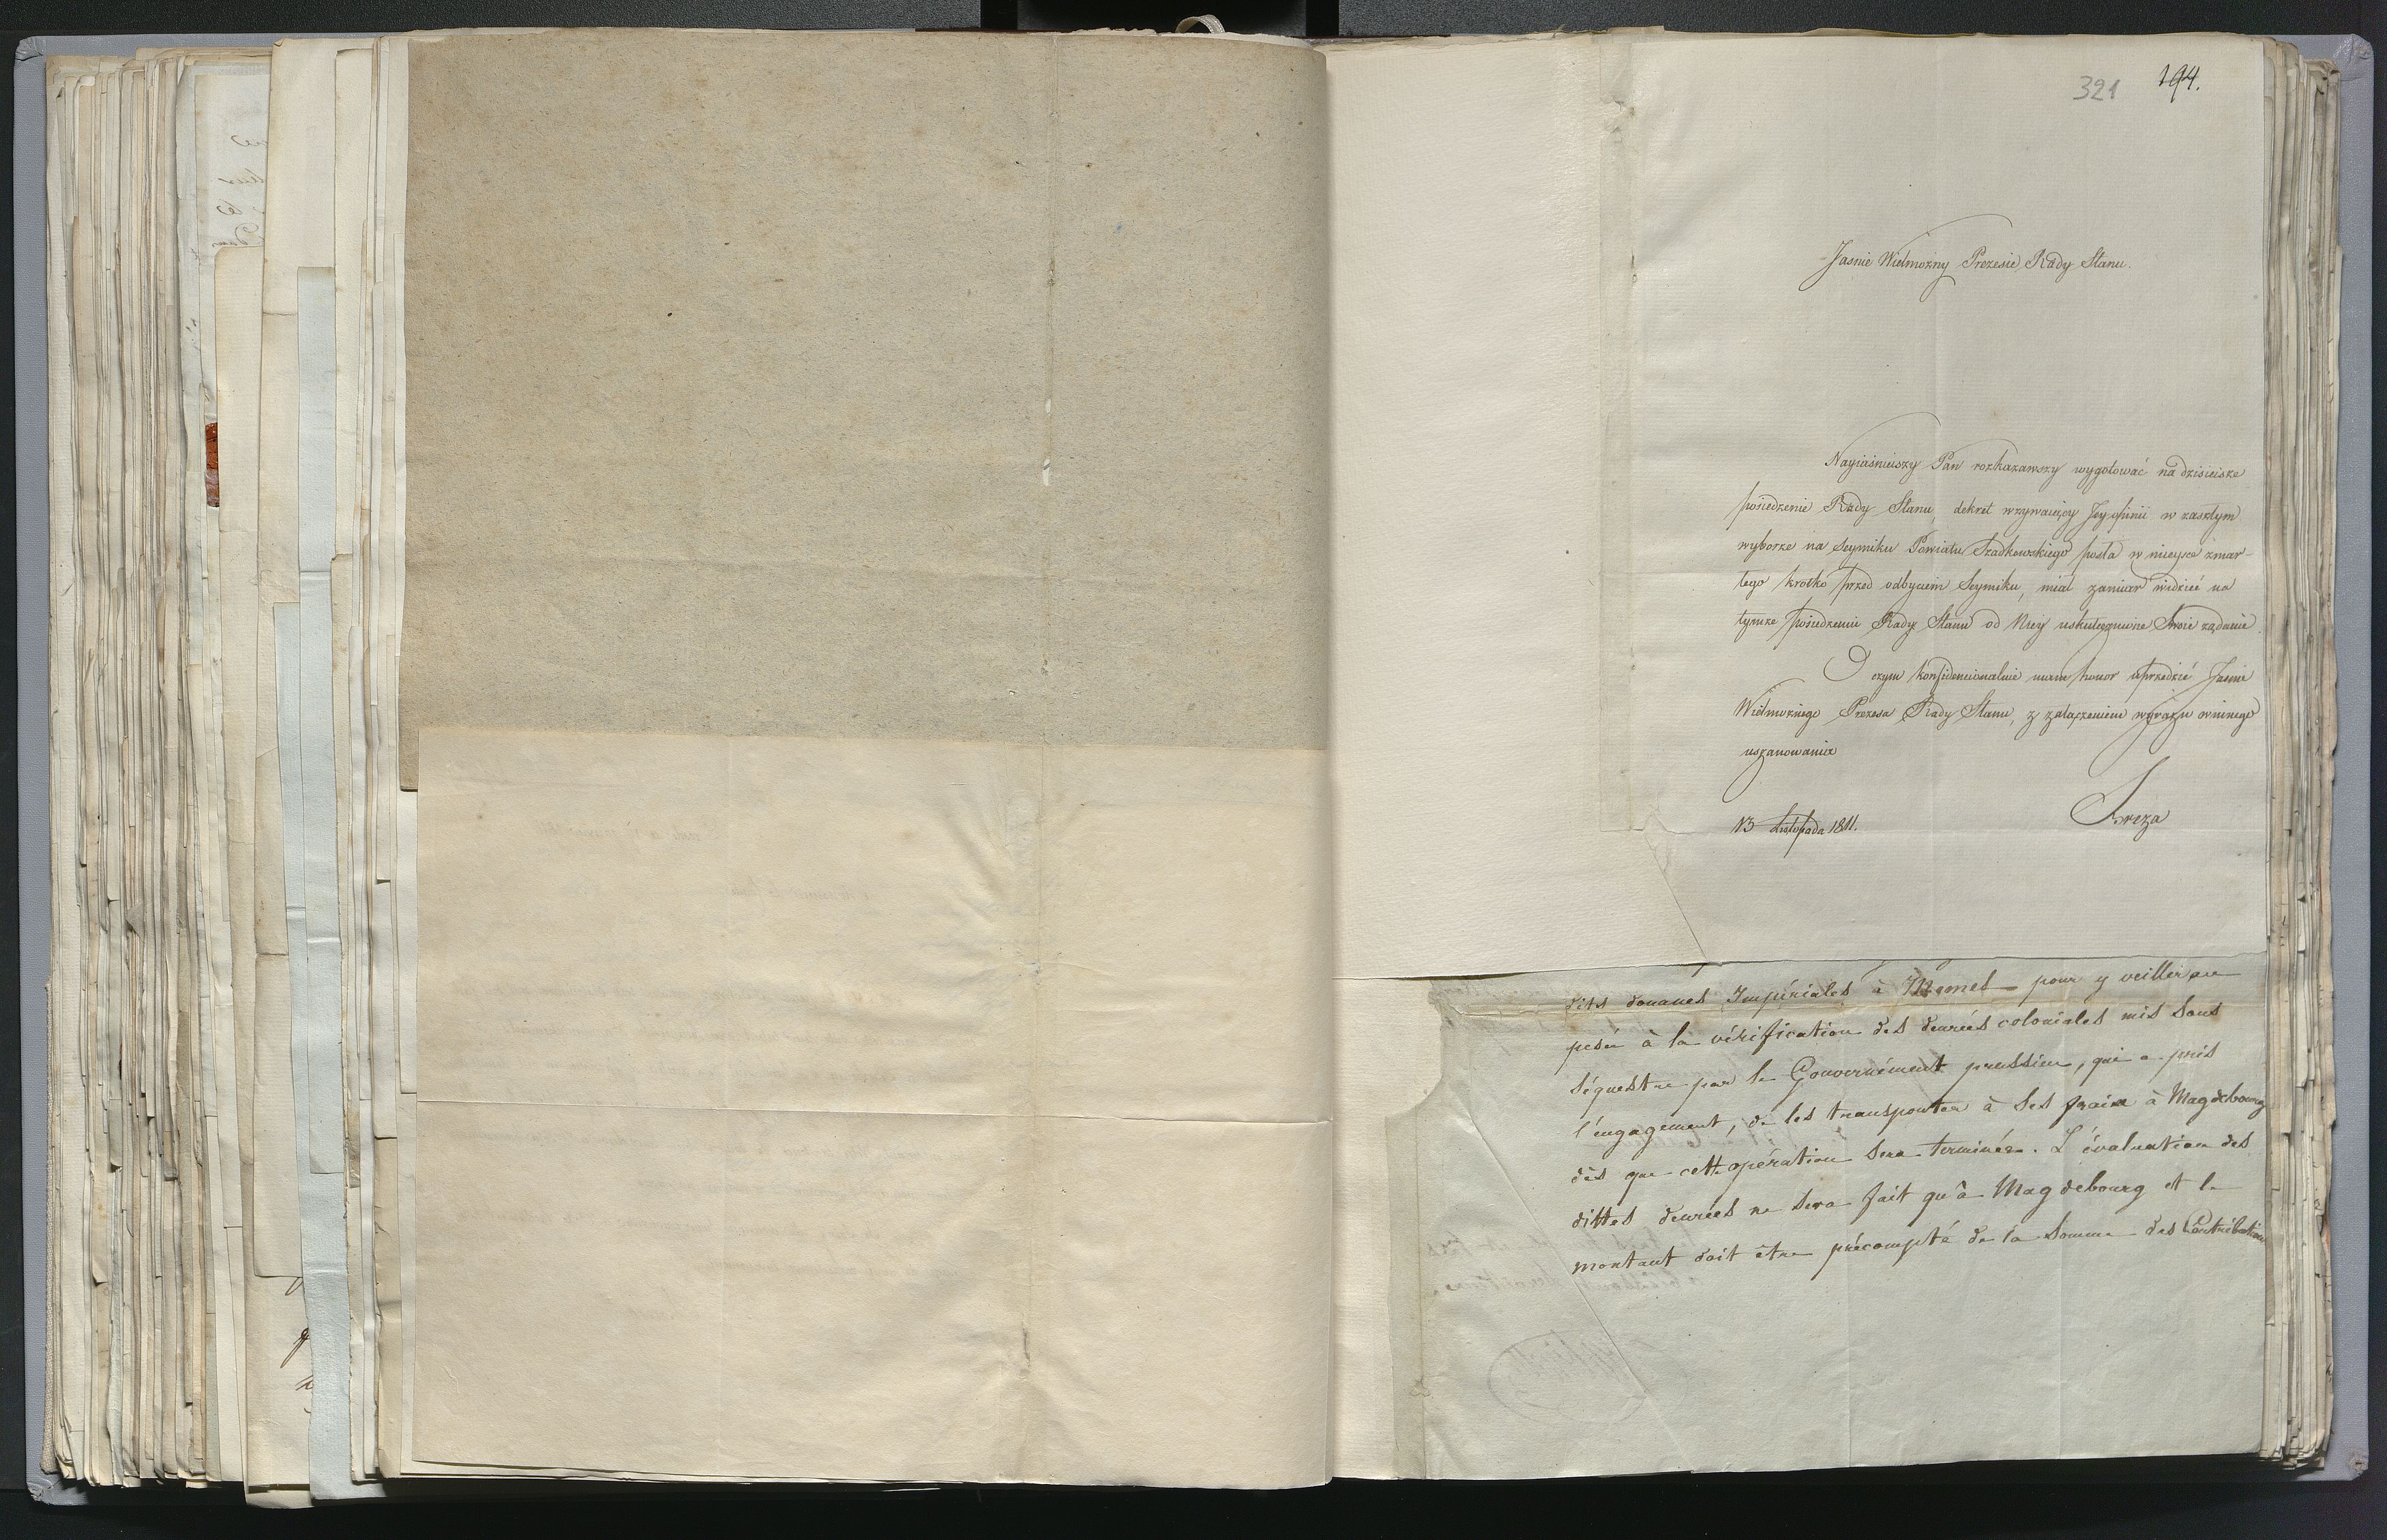 321 194.
Jasnie Wielmożny Prezesie Rady Stanu.
Nayiaśnieiszy Pan rozkazawszy wygotować na dzisieisze
posiedzenie Rady Stanu, dekret wzywaiący Jey opinii w zaszłym
wyborze na Seymiku Powiatu Szadkowskiego posła w mieysce zmar-
łego krotko przed odbyciem Seymiku, miał zamiar widzieć na
tymże posiedzeniu Rady Stanu od Niey uskutecznione Swoie żądanie.
O czym konfidencionalnie mam honor uprzedzić Jasnie
Wielmożnego Prezesa Rady Stanu, z załączeniem wyrazu winnego
uszanowania
13 Listopada 1811.
Breza
dits douanes Impériales à Memel pour y veiller au
pesée à la vérification des denrées coloniales mis sous
séquestre par le Gouvernement prussien, qui a pris
l'engagement, de les transporter à ses fraix à Magdebourg
dès que cette opération sera terminée. L'évaluation des
dittes denrées ne sera fait qu'à Magdebourg et le
montant doit être précompté de la Somme des Contributions